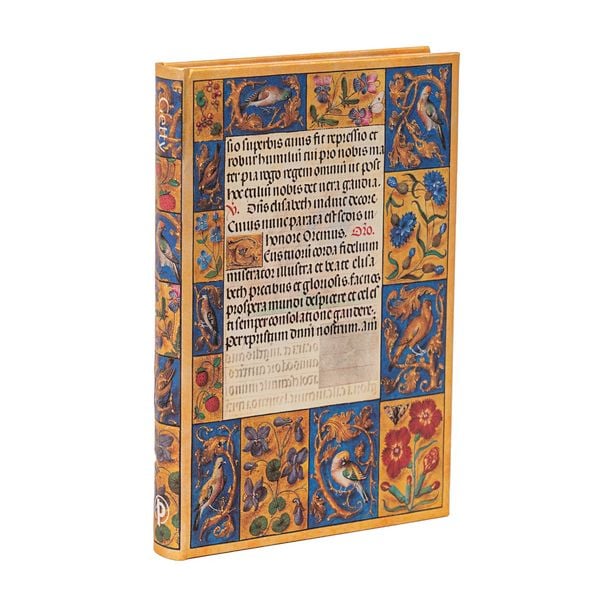 Getty
sio superbis cuius fit repressio et
robur humiliū tu pro nobis ma
ter pia rogo regem omniū ut post
hoc exiliū nobis det vera gaudia.
℣. Dn̄s elisabeth induit decore.
Cuius nunc parata est sedis in
honore Oremus. Oro.
tuorū corda fidelium
miserator illustra et beate elisa
beth precibus et gloriosis. fac nos
prospera mundi despicere et celes
ti semper consolatione gaudere.
per xpistum dnm̄ nostrum. am̄
P